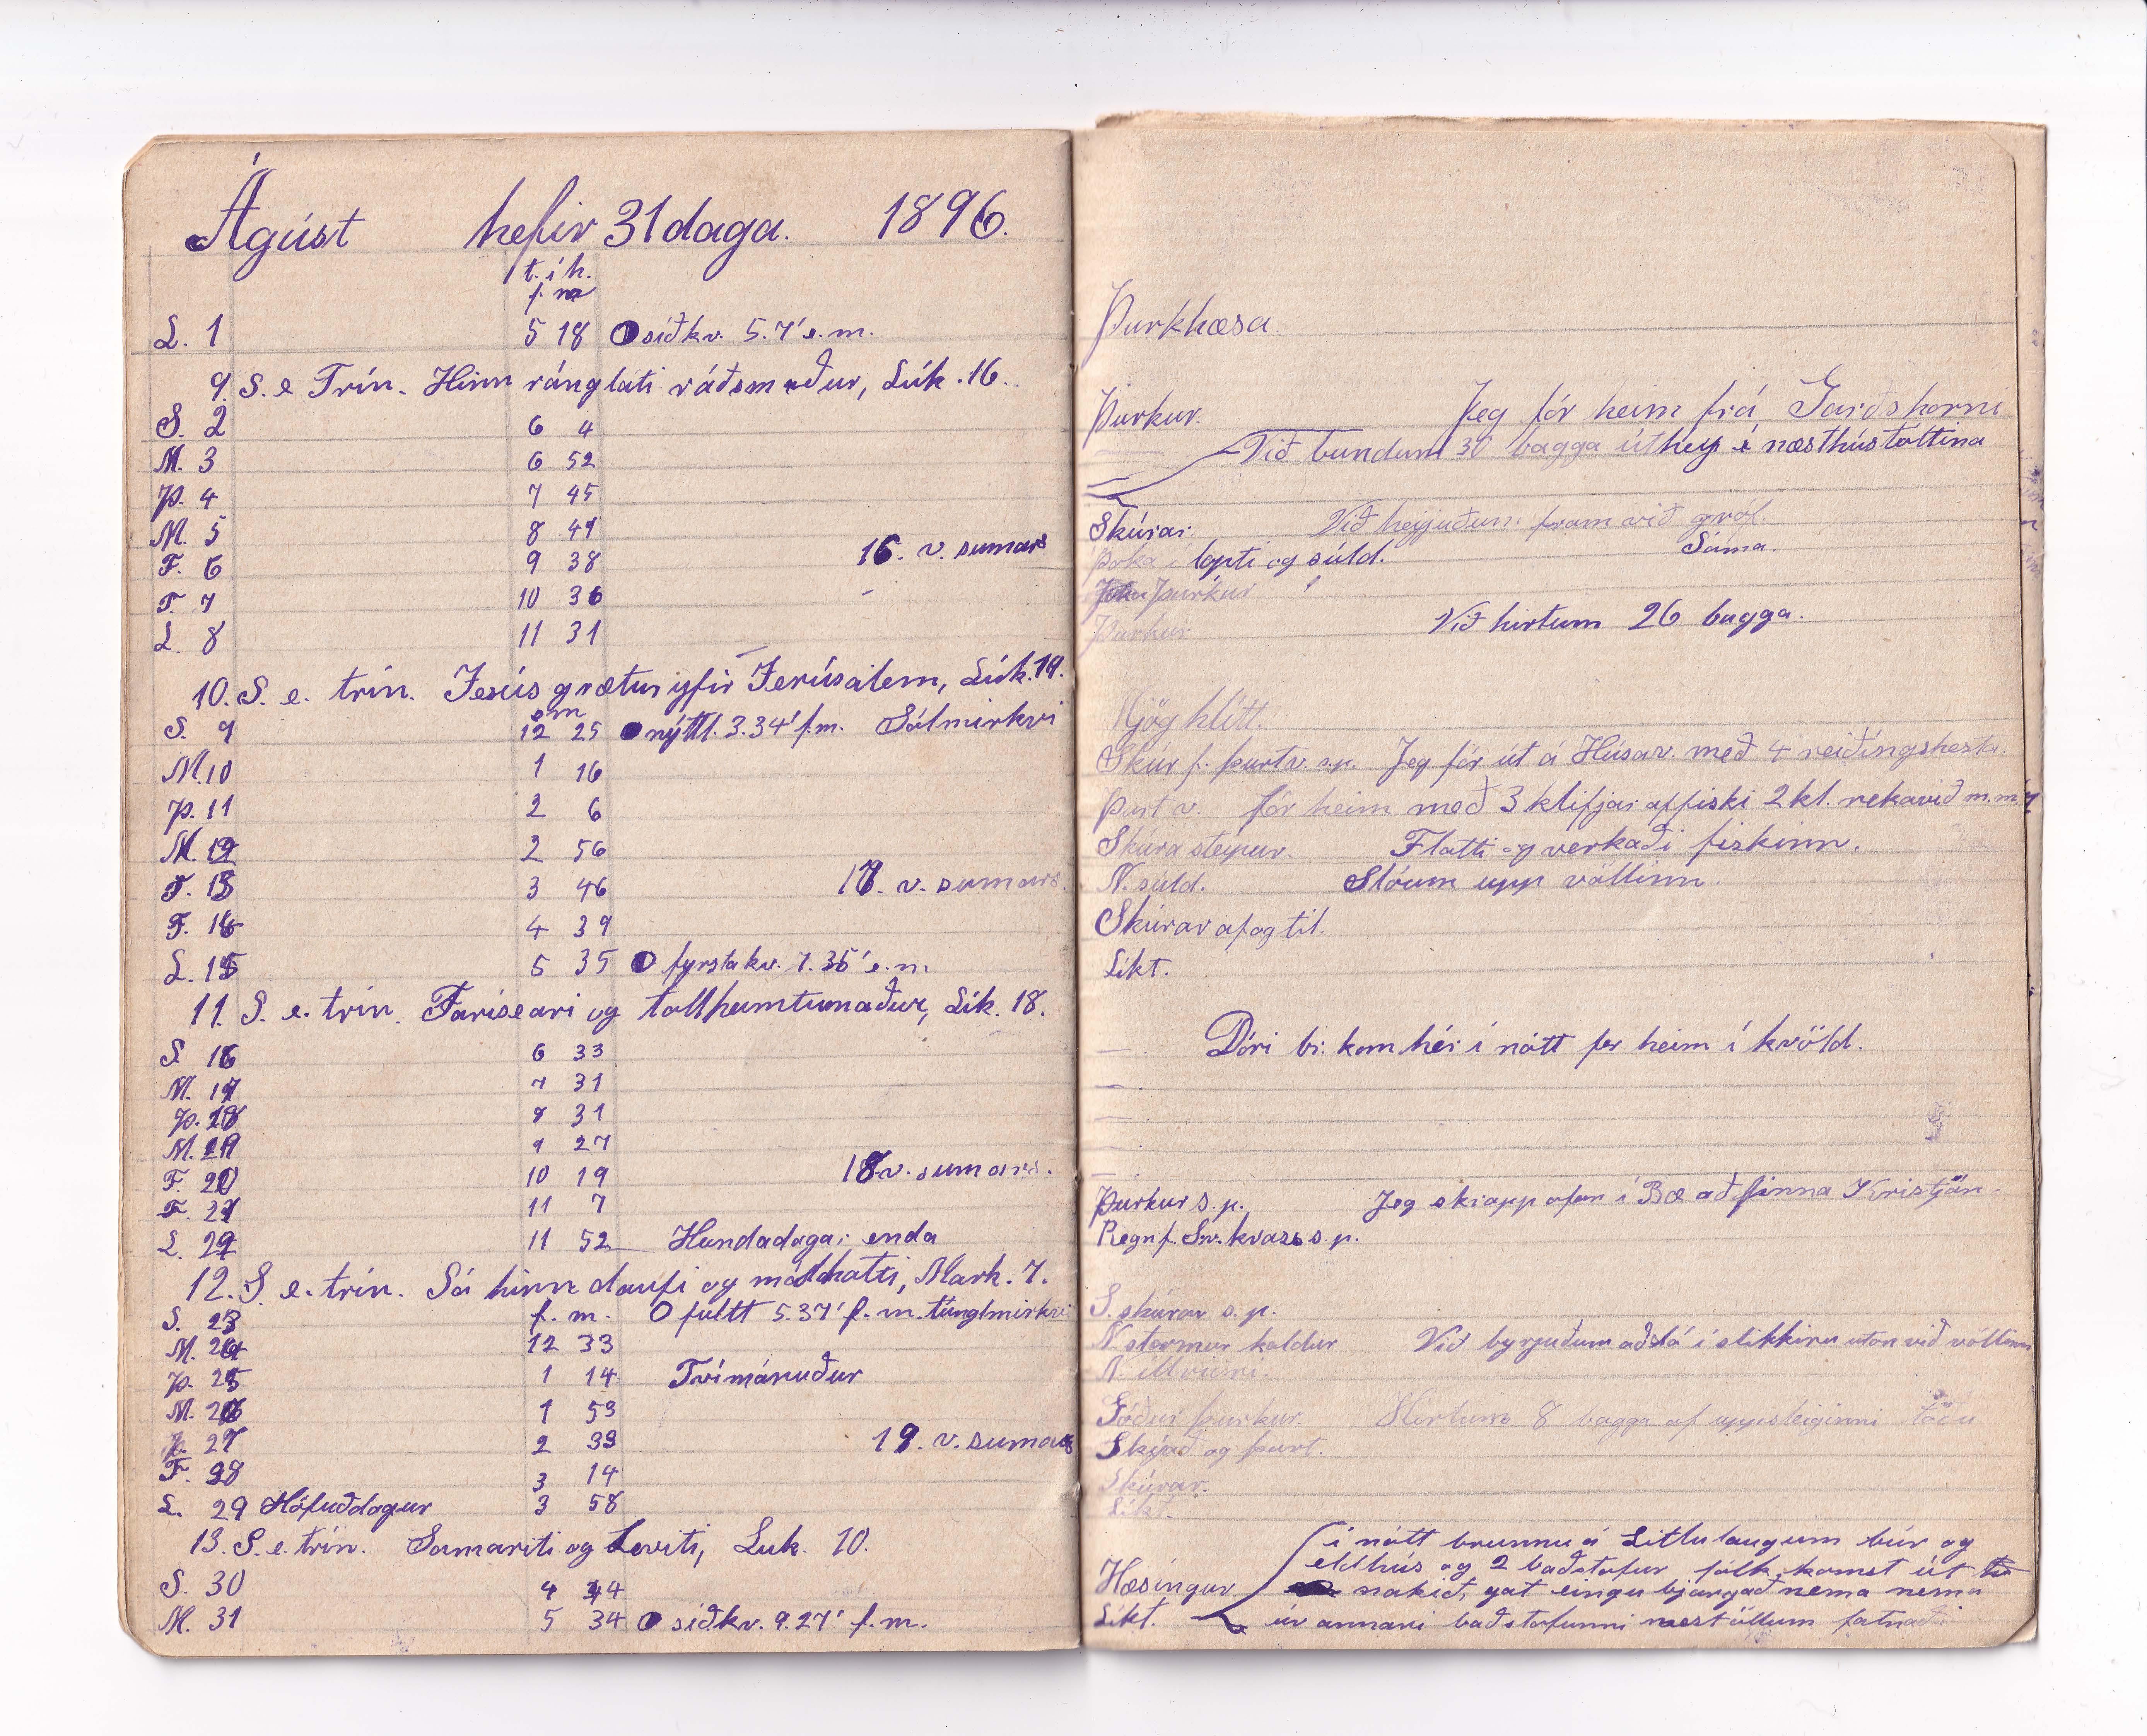 Ágúst hefir 31 daga. 1896.
t. í h.
f. m
L. 1 5 18 síðkv. 5.7' e.m.
9. S. e Trín. Hinn rángláti ráðsmaður, Lúk. 16.
S. 2 6 4
M. 3 6 52
Þ. 4 7 45
M. 5 8 41
F. 6 9 38 16. v. sumars
F. 7 10 36
L. 8 11 31
10. S. e. trín. Jesús grætur yfir Jerúsalem, Lúk. 19.
em
S. 9 12 25 nýttl. 3.34' f.m. Sólmirkvi
M. 10 1 16
Þ. 11 2 6
M. 12 2 56
F. 13 3 46 17. v. sumars.
F. 14 4 39
L. 15 5 35 fyrsta kv. 7.35' e.m
11. S. e. trín. Fariseari og tollheimtumaður, Lúk. 18.
S. 16 6 33
M. 17 7 31
Þ. 18 8 31
M. 19 9 27
F. 20 10 19 18 v. sumars.
F. 21 11 7
L. 22 11 52 Hundadagar enda
12. S. e. trín. Sá hinn daufi og málhalti, Mark. 7.
S. 23 f. m. O fultt 5.37' f. m. túnglmirkvi
M. 24 12 33
Þ. 25 1 14 Tvímánuður
M. 26 1 53
F. 27 2 33 19. v. sumars
F. 28 3 14
L. 29 Höfuðdagur 3 58
13. S. e. trín. Samariti og Leviti, Luk. 10.
S. 30 4 44
M. 31 5 34 síðkv. 9.27' f.m.
Þurkhæsa.
Þurkur. Jeg fór heim frá Garðshorni
Við bundum 30 bagga úthey í næsthústóttina
Skúrar. Við heyjuðum fram við gróf.
Þoka í lopti og súld. Sama.
Þurkur
Þurkur Við hirtum 26 bagga.
Mjög hlítt.
Skúr f. þurt v. s.p. Jeg fór út á Húsav. með 4 reiðíngshesta.
Þurt v. fór heim með 3 klifjar af fiski 2 kl. rekavið m.m.
Skúra steypur. Flatti og verkaði fiskinn.
N. súld. Slóum upp völlinn.
Skúrar af og til.
Líkt.
Dóri br. kom hér í nótt fer heim í kvöld.
Þurkur s.p. Jeg skrapp ofan í Bæ að finna Kristján.
Regn f. Sv. kvass s.p.
S. skúrar s.p.
N. stormur kaldur Við byrjuðum að slá í slikkiru utan við völlinn
Góður þurkur. Hirtum 8 bagga af uppsleiginni töðu
Skýjað og þurt.
Skúrar.
Líkt.
í nótt brunnu á Litlulaugum búr og
eldhús og 2 baðstofur fólk komst út
Hæsingur nakið, gat eingu bjargað nema nema
Líkt. úr annari baðstofunni mest öllum fatnaði